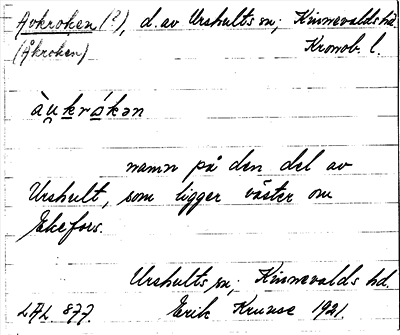 Avkroken (?), d. av Urshults sn; Kinnevalds hd.
(Åkroken) Kronob. l.
àu̯krókən
namn på den del av
Urshult, som ligger väster om
Ekefors.
Urshults sn; Kinnevalds hd.
LAL 877. Erik Kruuse 1921.